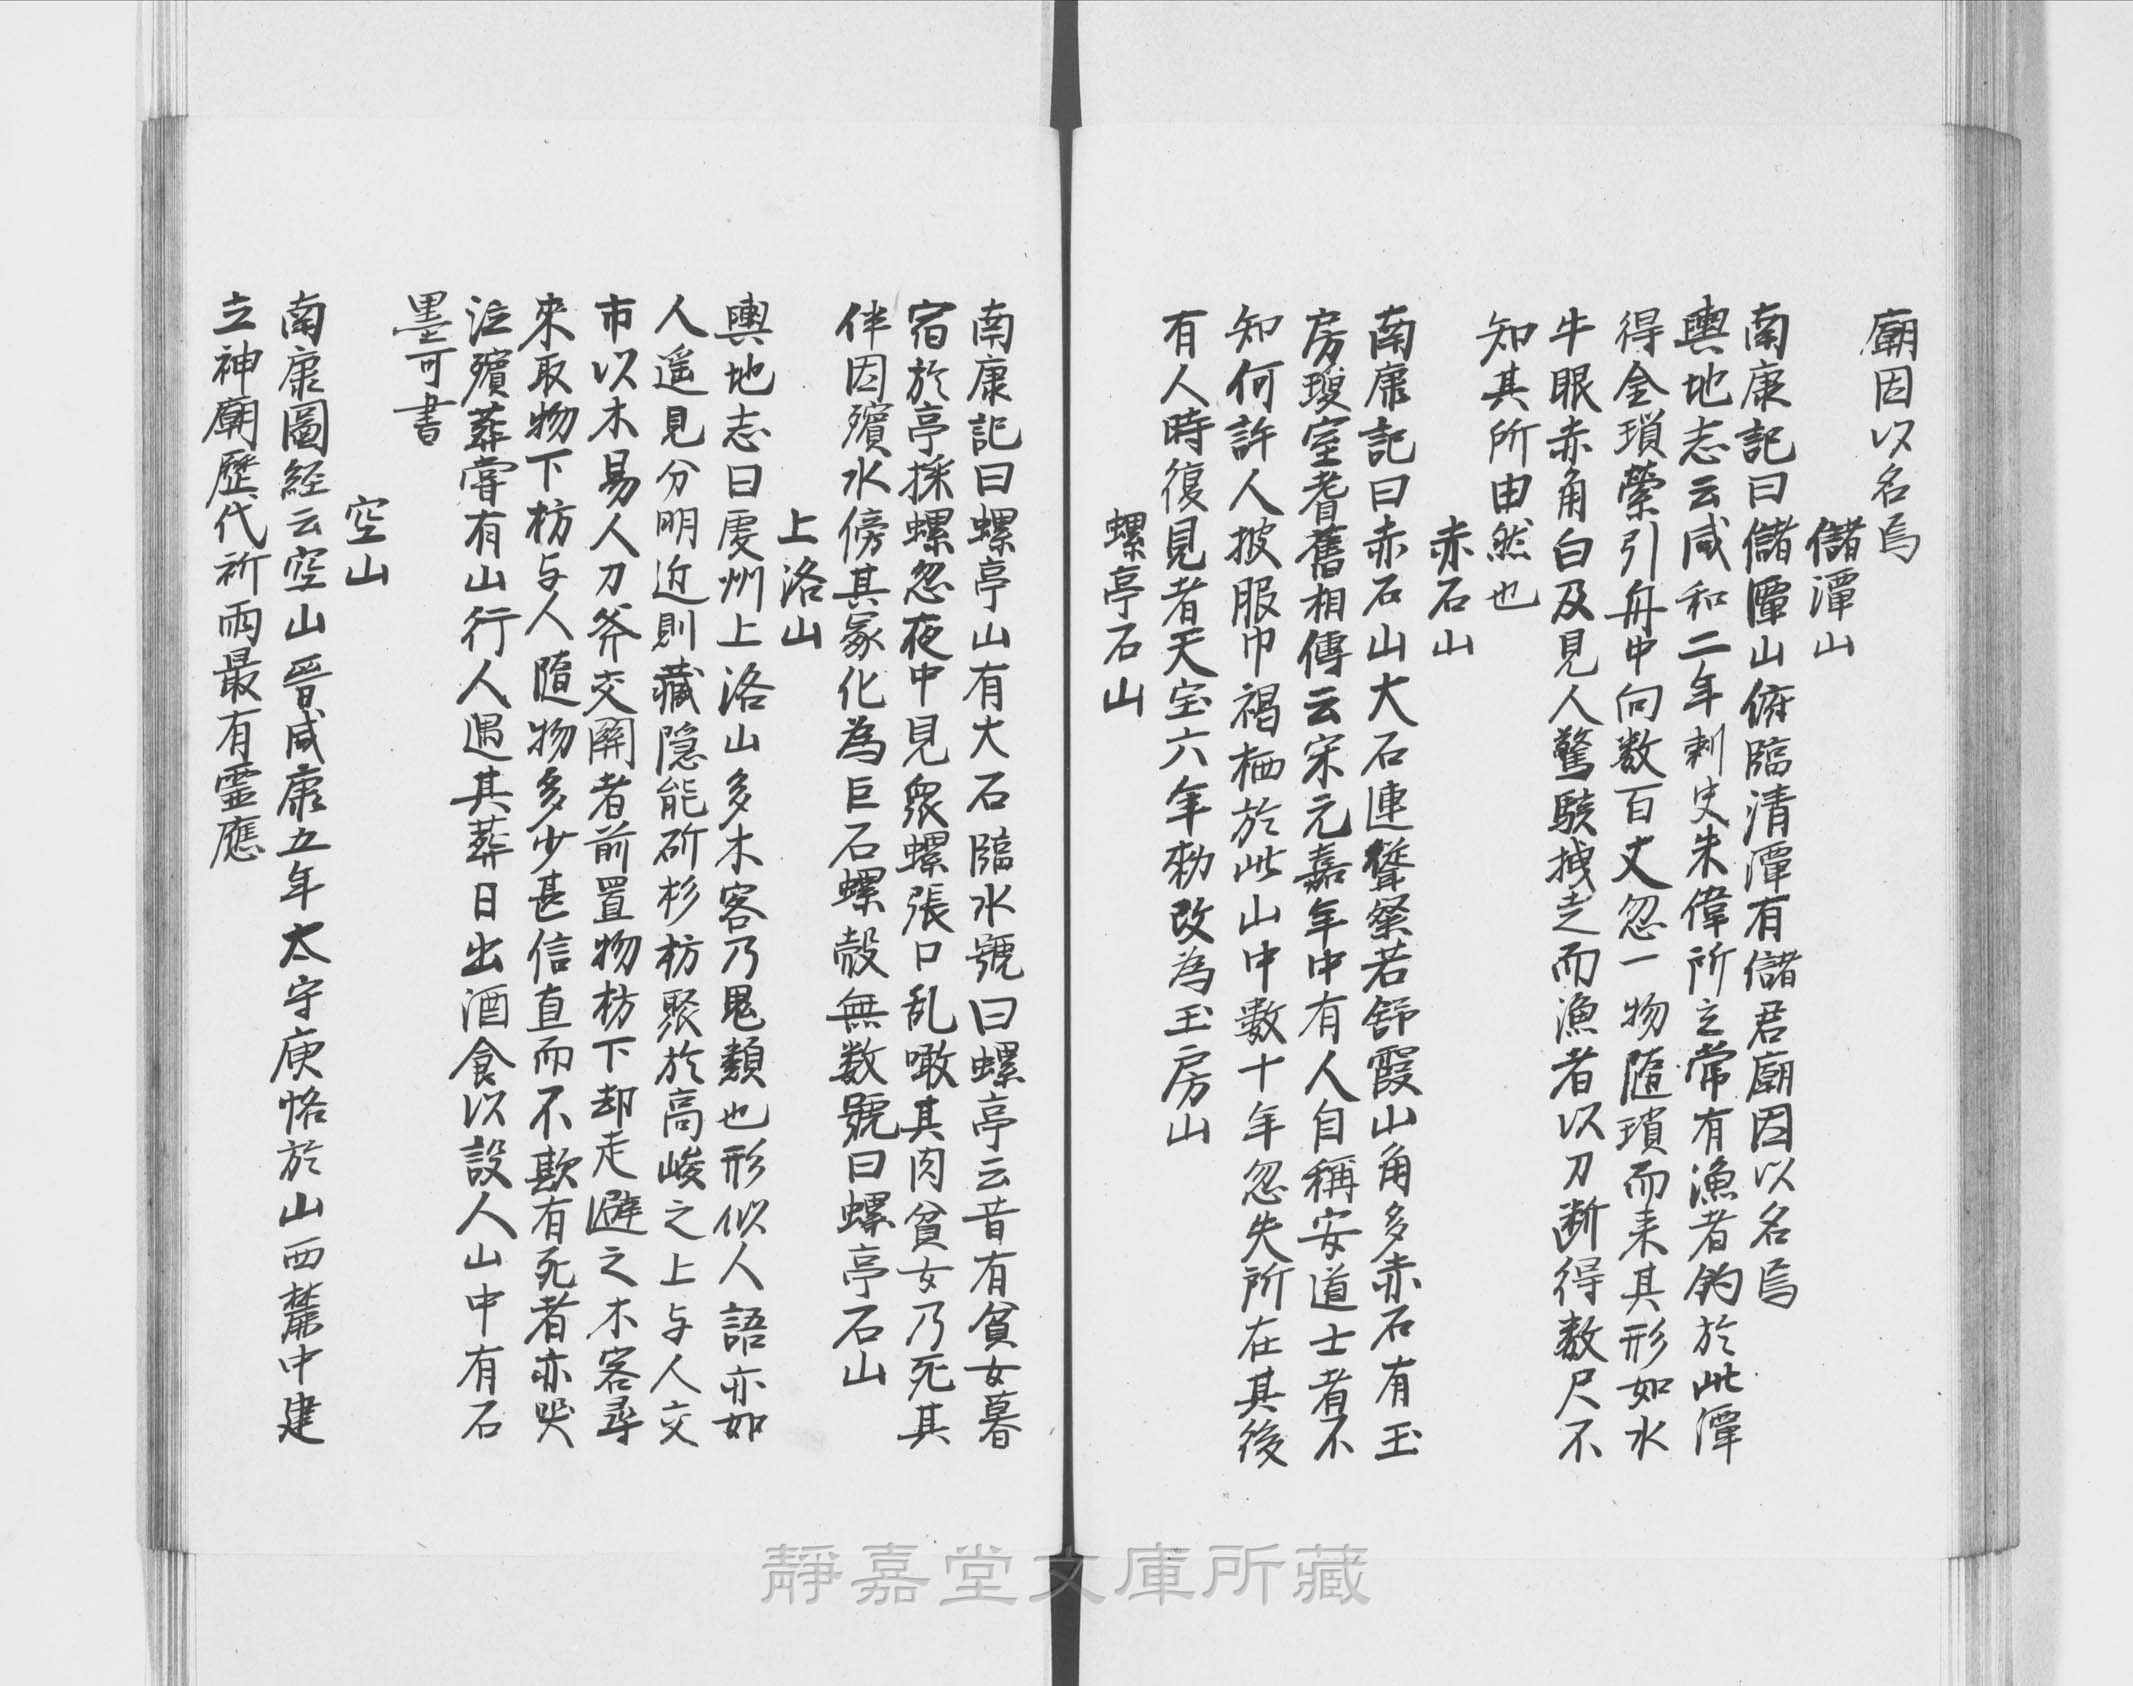 廟因以名焉
儲潭山
南康記曰儲潭山俯臨清潭有儲君廟因以名焉
輿地志云咸和二年刺史朱偉所立常有漁者釣於此潭
得金瑣縈引舟中向数百丈忽一物隨瑣而来其形如水
牛眼赤角白及見人驚駭拽走而漁者以刀断得数尺不
知其所由然也
赤石山
南康記曰赤石山大石連聳粲若舒霞山角多赤石有玉
房瓊室耆舊相傳云宋元嘉年中有人自稱安道士者不
知何許人披服巾褐栖於此山中数十年忽失所在其後
有人時復見者天宝六年勅改為玉房山
螺亭石山
南康記曰螺亭山有大石臨水號曰螺亭云昔有貧女暮
宿於亭採螺忽夜中見衆螺張口乱噉其肉貧女乃死其
伴因殯水傍其冢化為巨石螺殻無数號曰螺亭石山
上洛山
輿地志曰虔州上洛山多木客乃鬼類也形似人語亦如
人遥見分明近則藏隠能斫杉枋聚於高峻之上与人交
市以木易人刀斧交關者前置物枋下却走避之木客尋
来取物下枋与人隨物多少甚信直而不欺有死者亦哭
泣殯葬嘗有山行人遇其葬日出酒食以設人山中有石
墨可書
空山
南康圖経云空山晉咸康五年太守庾恪於山西麓中建
立神廟歷代祈雨最有霊應
靜嘉堂文庫所藏